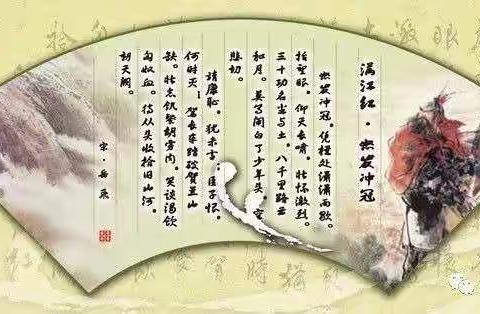 满江红·怒发冲冠
怒发冲冠。凭栏处潇潇雨歇。
抬望眼。仰天长啸。壮怀激烈。
三十功名尘与土。八千里路云
和月。莫等闲白了少年头。空
悲切。
靖康耻。犹未雪。臣子恨。
何时灭。驾长车踏破贺兰山
缺。壮志饥餐胡虏肉。笑谈渴饮
匈奴血。待从头收拾旧山河。
朝天阙。
宋·岳飞